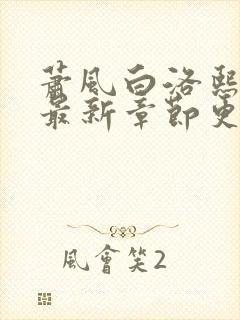 萧風白洛熙
最新章節更
風會笑2